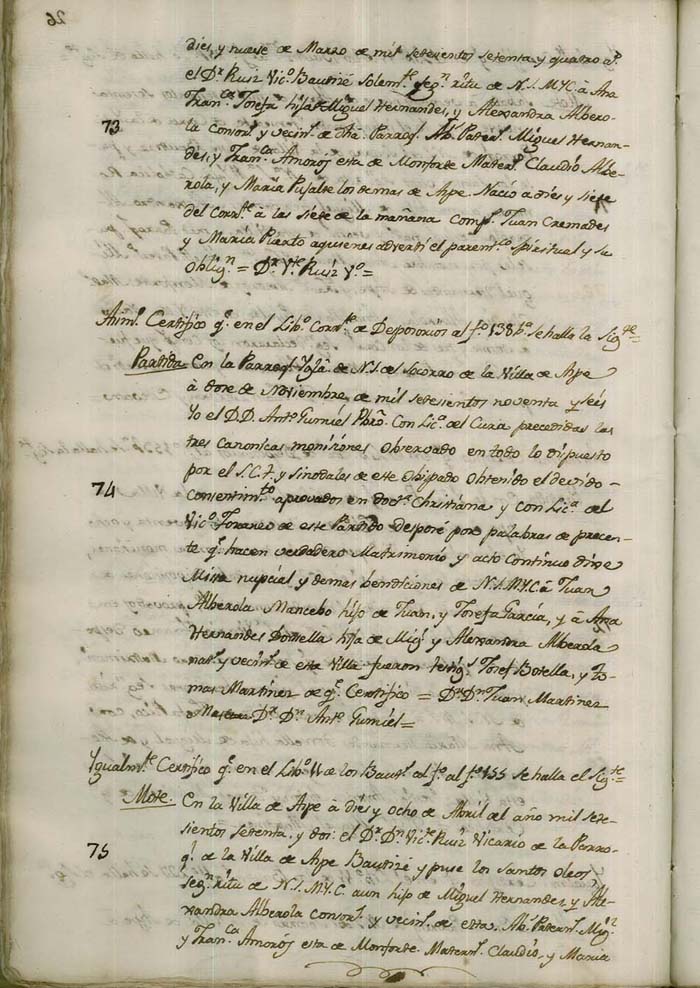 26
dies, y nueve de Marzo de mil setesientos setenta y quatro a.s
el D.r Ruiz Vic.o Bautizé Solem.te seg.n ritu de N.S.M.Y.C. à Ana
Fran.ca Josefa hija de Miguel Hernandes, y Alexandra Albero-
73
la consor.s y vecin.s de dha Parroq.l Ab.s Patern.s Miguel Hernan-
des, y Fran.ca Amorós esta de Monforte Matern.s Claudio Albe-
rola, y Maria Pujalte los demas de Aspe. Nacio a dies y siete
del corr.te à las siete de la mañana Comp.s Juan Cremades
y Maria Puerto aquienes advertí el parent.co spiritual y su
oblig.n = D.r V.te Ruiz V.o =
Asim.o Certifico q.e en el Lib.o Corr.te de Desposorios al f.o 138 b.o se halla la sig.te =
Partida. En la Parroq.l Ygl.a de N.S. del Socorro de la Villa de Aspe
à dose de Noviembre de mil setesientos noventa y seis
Yo el D.D. Ant.o Gumiel Pbro. Con Lic.a del Cura precedidas las
tres canonicas monisiones observado en todo lo dispuesto
por el S.C.T. y sinodales de este Obispado obtenido el devido
74
consentim.to aprovados en doct.a Christiana y con Lic.a del
Vic.o Foraneo de este Partido desposé por palabras de precen-
te q.e hacen verdadero Matrimonio y acto continuo dixe
Misa nupcial y demas bendiciones de N.S.M.Y.C. à Juan
Alberola Mancebo hijo de Juan, y Josefa García, y à Ana
Hernandes Donsella hija de Mig.l y Alexandra Alberola
nat.s y vecin.s de esta Villa fueron testig.s Josef Botella, y To-
mas Martinez de q.e Certifico = D.r D.n Juan Martinez
D.r D.n Ant.o Gumiel =
Ygualm.te Certifico q.e en el Lib.o de los Baut.s al f.o al f.o 155 se halla el sig.te =
Mote. En la Villa de Aspe à dies y ocho de Abril del año mil sete-
sientos setenta, y dos: el D.r D.n Vic.te Ruiz Vicario de la Parro-
75
q.l de la Villa de Aspe Bautizé y puse los santos oleos,
seg.n ritu de N.S.M.Y.C. aun hijo de Miguel Hernandez y Ale-
xandra Alberola consor.s y vecin.s de esta. Ab.s Patern.s Mig.l
y Fran.ca Amorós esta de Monforte. Matern.s Claudio, y Maria